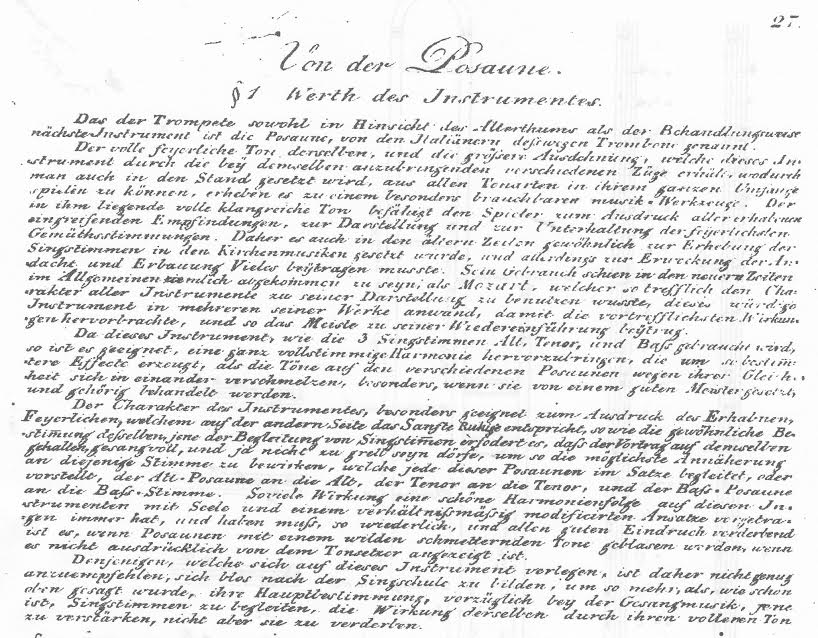 27.
Von der Posaune.
§ 1 Werth des Instrumentes.
Das der Trompete sowohl in Hinsicht des Alterthums als der Behandlungsweise
nächste Instrument ist die Posaune, von den Italiänern deswegen Trombone genannt.
Der volle feyerliche Ton derselben, und die grössere Ausdehnung, welche dieses In-
strument durch die beÿ demselben anzubringenden verschiedenen Züge erhält, wodurch
man auch in den Stand gesetzt wird, aus allen Tonarten in ihrem ganzen Umfange
spielen zu können, erheben es zu einem besonders brauchbaren musik-Werkzeuge. Der
in ihm liegende volle klangreiche Ton befähigt den Spieler zum Ausdruck aller erhabnen
eingreifenden Empfindungen, zur Darstellung und zur Unterhaltung der feÿerlichsten
Gemüthsstimmungen. Daher es auch in den ältern Zeiten gewöhnlich zur Erhebung der
Singstimmen in den Kirchenmusiken gesetzt wurde, und allerdings zur Erweckung der An-
dacht und Erbauung Vieles beÿtragen musste. Sein Gebrauch schien in den neuern Zeiten
im Allgemeinen ziemlich abgekommen zu seyn, als Mozart, welcher so trefflich den Cha-
rakter aller Instrumente zu seiner Darstellung zu benutzen wusste, dieses würdige
Instrument in mehreren seiner Werke anwand, damit die vortrefflichsten Wirkun-
gen hervorbrachte, und so das Meiste zu seiner Wiedereinführung beÿtrug.
Da dieses Instrument, wie die 3 Singstimmen Alt, Tenor, und Baß gebraucht wird,
so ist es geeignet, eine ganz vollstimmige Harmonie hervorzubringen, die um so bestim-
tere Effecte erzeugt, als die Töne auf den verschiedenen Posaunen wegen ihrer Gleich-
heit sich in einander verschmelzen, besonders, wenn sie von einem guten Meister gesetzt,
und gehörig behandelt werden.
Der Charakter des Instrumentes, besonders geeignet zum Ausdruck des Erhabnen,
Feyerlichen, welchem auf der andern Seite das Sanfte Ruhige entspricht, so wie die gewöhnliche Be-
stim̄ung desselben, jene der Begleitung von Singstim̄en erfodert es, daß der Vortrag auf demselben
gehalten, gesangvoll, und ja nicht zu grell seyn dörfe, um so die möglichste Annäherung
an diejenige Stimme zu bewirken, welche jede dieser Posaunen im Satze begleitet, oder
vorstellt, der Alt-Posaune an die Alt, der Tenor an die Tenor, und der Baß-Posaune
an die Baß-Stimme. Soviele Wirkung eine schöne Harmonienfolge auf diesen In-
strumenten mit Seele und einem verhältnißmäsig modificirten Ansatze vorgetra-
gen immer hat, und haben muß, so wiederlich, und allen guten Eindruck verderbend
ist es, wenn Posaunen mit einem wilden schmetternden Tone geblasen werden, wenn
es nicht ausdrücklich von dem Tonsetzer angezeigt ist.
Denjenigen, welche sich auf dieses Instrument verlegen, ist daher nicht genug
anzuempfehlen, sich blos nach der Singschule zu bilden, um so mehr, als, wie schon
oben gesagt wurde, ihre Hauptbestimmung, vorzüglich bey der Gesangmusik, jene
ist, Singstimmen zu begleiten, die Wirkung derselben durch ihren volleren Ton
zu verstärken, nicht aber sie zu verderben.